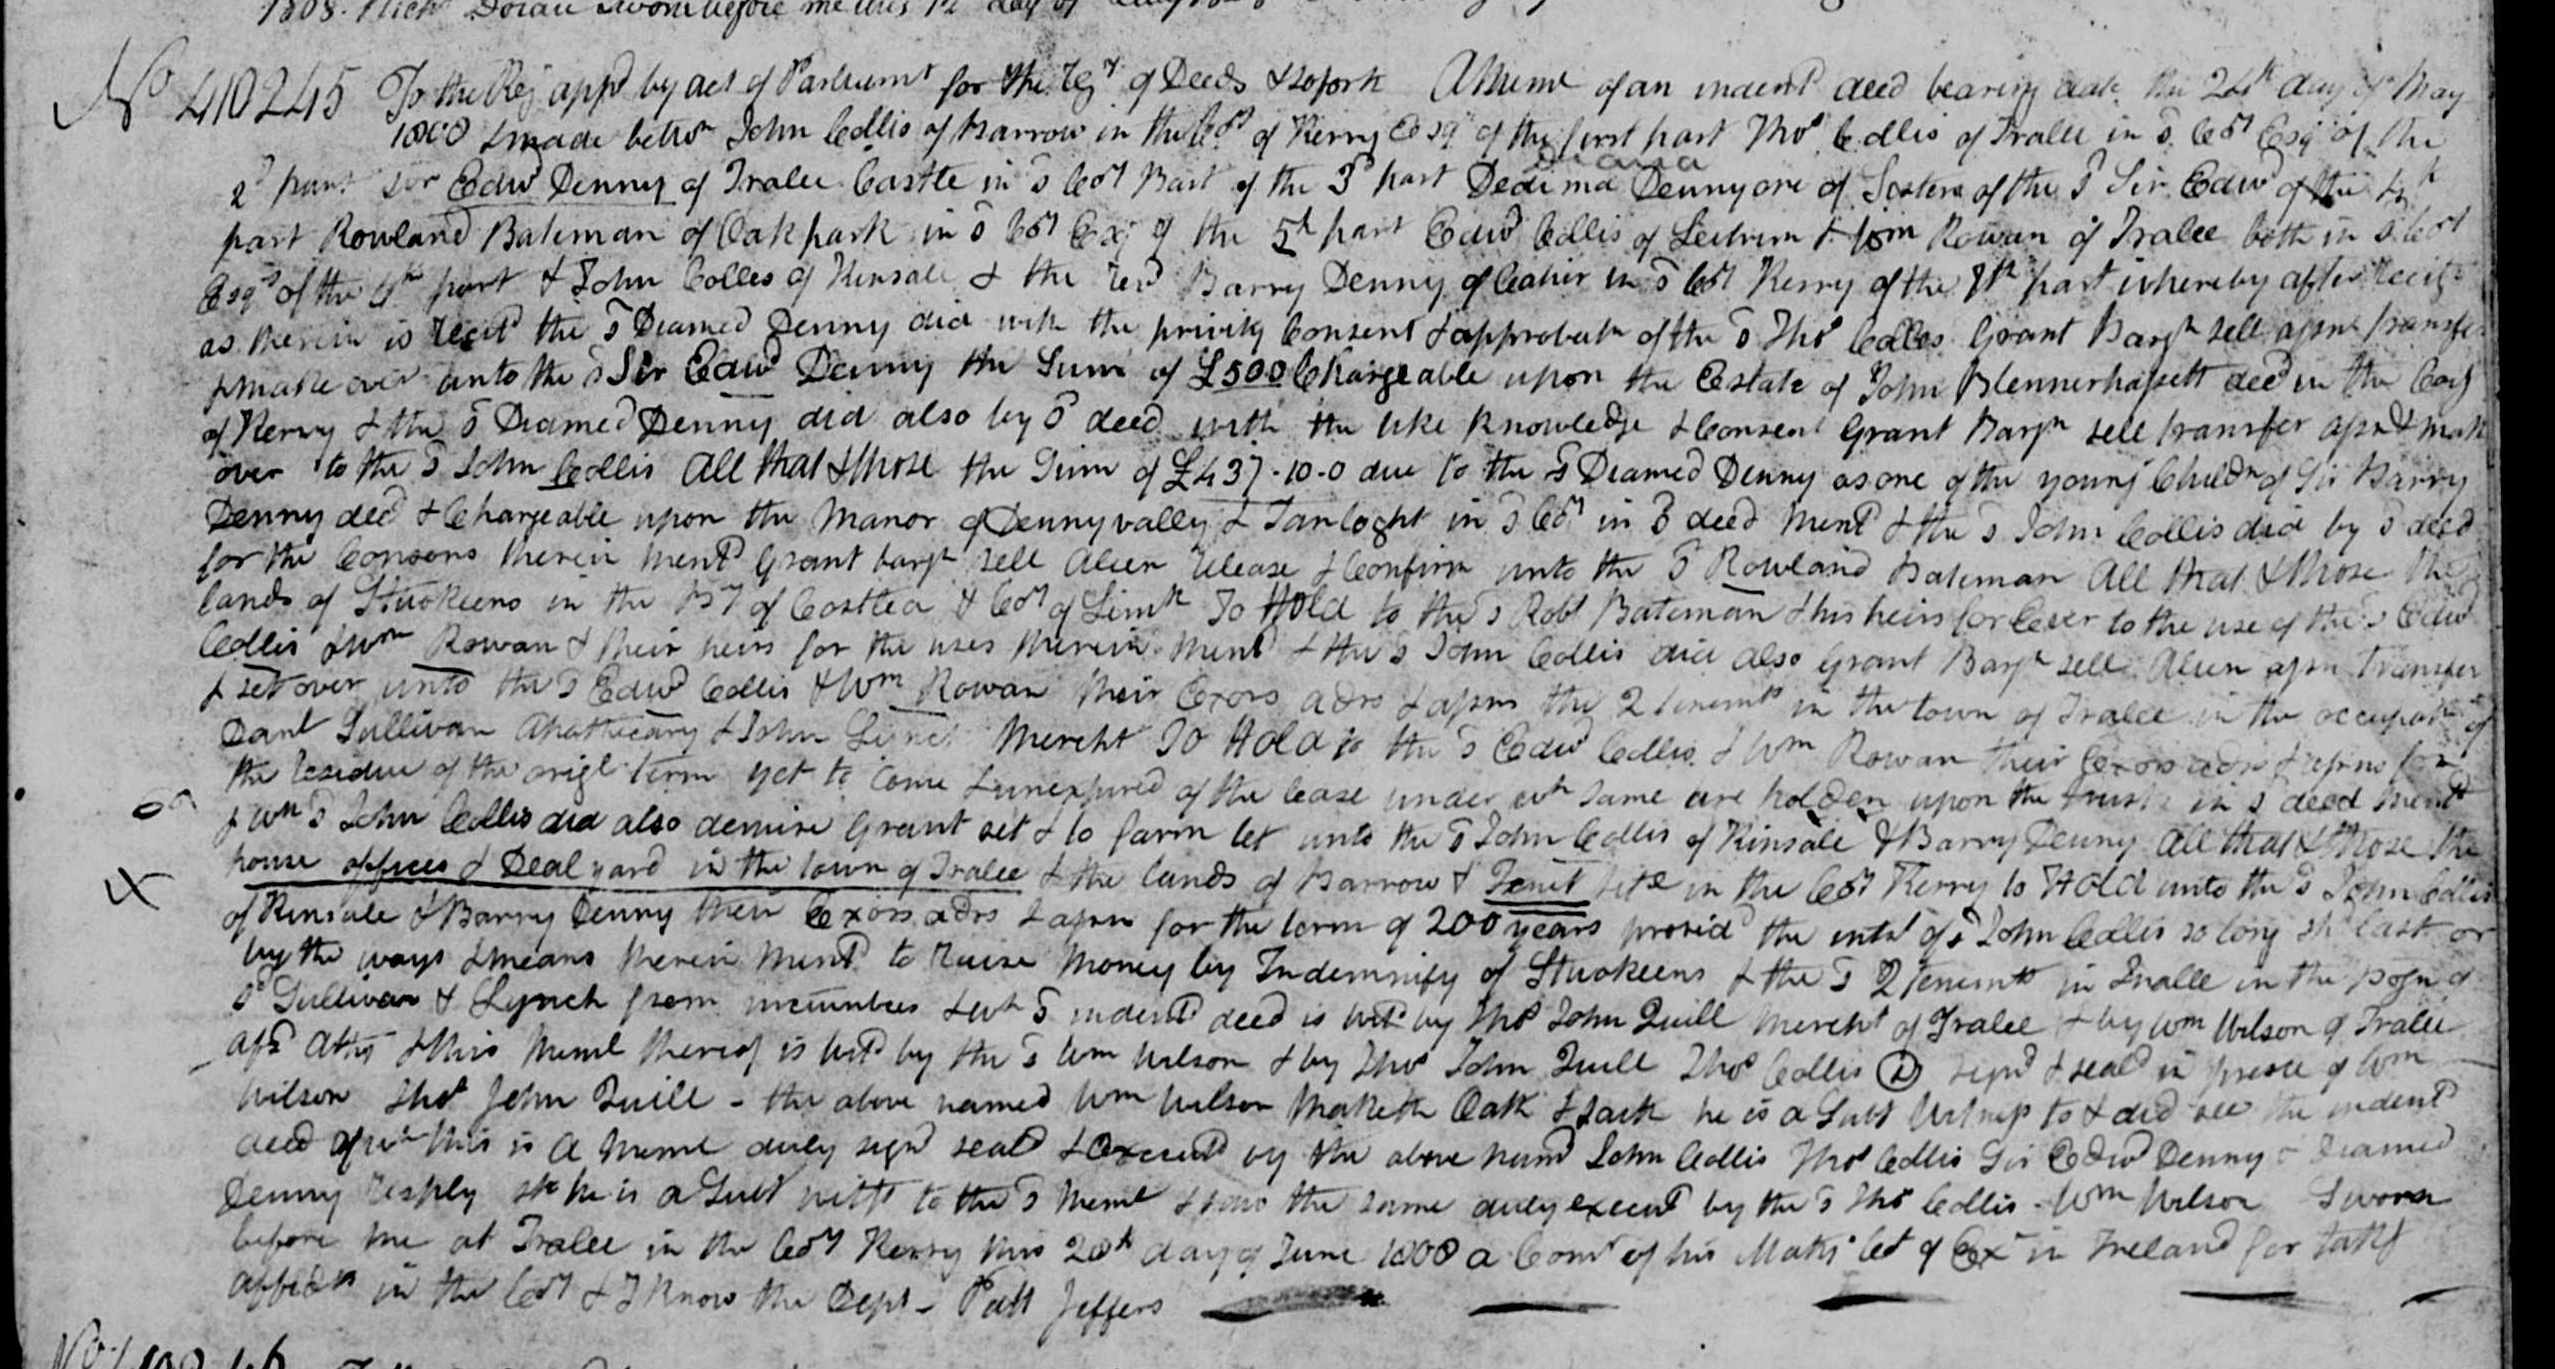 1808. Mich Doran Sworn before me this 12 day of
No 410245 To the Reg appd by act of Parliamt for the Regy of Deeds & soforth A Meml of an indentd deed bearing date the 24th day of May
1808 & made betwn John Collis of Barrow in the Coy of Kerry Esqr of the first part Thos Collis of Tralee in sd Coy Esqr of the
2d part Sir Edwd Denny of Tralee Castle in sd Coy Bart of the 3d part Dedimia Diana Denny one of Sisters of the sd Sir Edwd of the 4th
part Rowland Bateman of Oakpark in sd Coy Esq of the 5th part Edwd Collis of Leitrim & Wm Rowan of Tralee both in sd Coy
Esqrs of the 6th part & John Colles of Kinsale & the Revd Barry Denny of Caher in sd Coy Kerry of the 7th part whereby after recitg
as therein is recitd the sd Diamed Denny did with the privity Consent & approbatn of the sd Thos Colles Grant Bargn sell assn transfer
& make over unto the sd Sir Edwd Denny the Sum of £500 Chargeable upon the Estate of John Blennerhassett decd in the Coy
of Kerry & the sd Diamed Denny did also by sd deed with the like knowledge & Consent Grant Bargn sell transfer assn & make
over to the sd John Collis All that & those the Sum of £437-10-0 due to the sd Diamed Denny as one of the young Childn of Sir Barry
Denny decd & Chargeable upon the Manor of Dennyvally & Tanloght in sd Coy in sd deed mentd & the sd John Collis did by sd deed
for the Consons therein mentd Grant bargn sell Alien release & Confirm unto the sd Rowland Bateman All that & those the
lands of Stuokeens in the By of Costlea & Coy of Limk To Hold to the sd Robt Bateman & his heirs for Ever to the use of the sd Edwd
Collis & Wm Rowan & their heirs for the uses therein mentd & the sd John Collis did also Grant Bargn sell Alien assn Transfer
& set over unto the sd Edwd Collis & Wm Rowan their Exors adrs & assns the 2 tenemts in the town of Tralee in the occupatn of
Danl Sullivan Apothecary & John Lynch Mercht To Hold to the sd Edwd Collis & Wm Rowan their Exors adrs & assns for
the residue of the origl term yet to come & unexpired of the lease under wh same are holden upon the trusts in sd deed mentd
& whn sd John Collis did also demise Grant set & to farm let unto the sd John Collis of Kinsale & Barry Denny All that & those the
house offices & Deal yard in the town of Tralee & the lands of Barrow & Fenit site in the Coy Kerry to Hold unto the sd John Collis
of Kinsale & Barry Denny their Exors adrs & assns for the term of 200 years provid the intst of sd John Collis so long shd last or
by the ways & means therein mentd to raise money by Indemnify of Stuokeens & the sd 2 tenemts in Tralee in the possn of
sd Sullivan & Lynch from incumbces & wh sd indentd deed is witd by Thos John Quill Mercht of Tralee & by Wm Wilson of Tralee
afsd Atty & this Meml thereof is witd by the sd Wm Wilson & by Thos John Quill Thos Collis (S) signd & seald in presce of Wm
Wilson Thos John Quill - the above named Wm Wilson Maketh Oath & saith he is a Subg Witness to & did see the indentd
deed of wh this is a Meml duly signd seald & Executd by the above namd John Collis Thos Collis Sir Edwd Denny & Diamed
Denny resply sth he is a Subg witss to the sd Meml & saw the same duly executd by the sd Thos Collis - Wm Wilson Sworn
before me at Tralee in the Coy Kerry this 20th day of June 1808 a Comr of his Matys Ct of Exr in Ireland for takg
affidts in the Coy & I know the Dept - Patt Jeffers